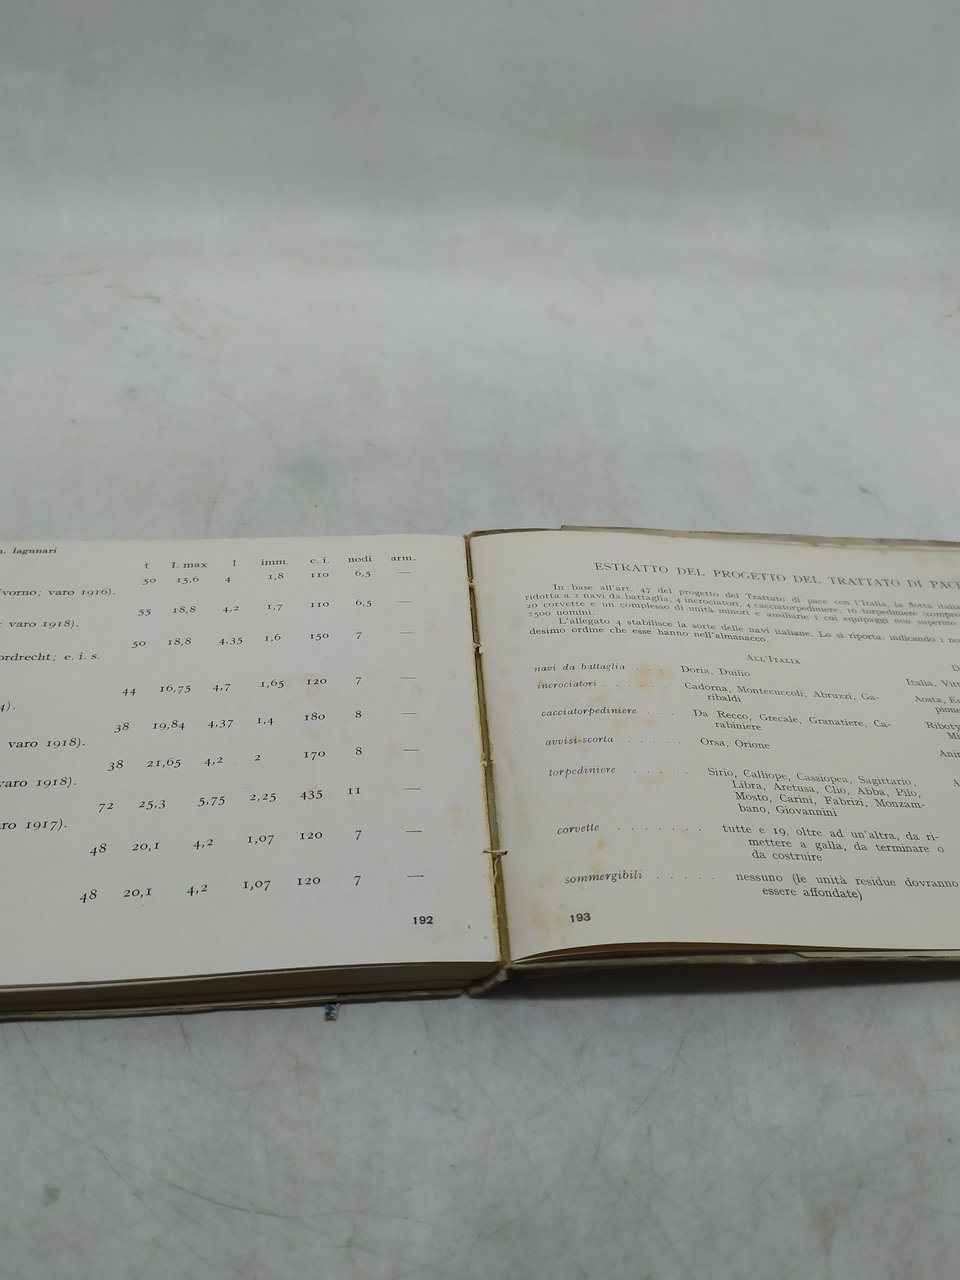 lagunari
t L max l imm. c. i. nodi arm.
50 15,6 4 1,8 110 6,5 —
varo 1916).
55 18,8 4,2 1,7 110 6,5 —
varo 1918).
50 18,8 4,35 1,6 150 7 —
c. i. s.
44 16,75 4,7 1,65 120 7 —
4).
38 19,84 4,37 1,4 180 8 —
varo 1918).
38 21,65 4,2 2 170 8 —
varo 1918).
72 25,3 5,75 2,25 435 11 —
ro 1917).
48 20,1 4,2 1,07 120 7 —
48 20,1 4,2 1,07 120 7 —
192
ESTRATTO DEL PROGETTO DEL TRATTATO DI PACE
In base all'art. 47 del progetto del Trattato di pace con l'Italia, la flotta
ridotta a 2 navi da battaglia, 4 incrociatori, 4 cacciatorpediniere, 16 torpediniere
20 corvette e un complesso di unità minori e ausiliarie i cui equipaggi non superino
2500 uomini.
L'allegato 4 stabilisce la sorte delle navi italiane. Lo si riporta, indicando i
desimo ordine che esse hanno nell'almanacco.
ALL'ITALIA
navi da battaglia . . . Doria, Duilio Italia,
incrociatori . . . . . . Cadorna, Montecuccoli, Abruzzi, Ga- Aosta,
ribaldi
cacciatorpediniere . . Da Recco, Grecale, Granatiere, Ca-
rabiniere
avvisi-scorta . . . . . Orsa, Orione
torpediniere . . . . . Sirio, Calliope, Cassiopea, Sagittario,
Libra, Aretusa, Clio, Abba, Pilo,
Mosto, Carini, Fabrizi, Monzam-
bano, Giovannini
corvette . . . . . . . tutte e 19, oltre ad un'altra, da ri-
mettere a galla, da terminare o
da costruire
sommergibili . . . . . nessuno (le unità residue dovranno
essere affondate)
193